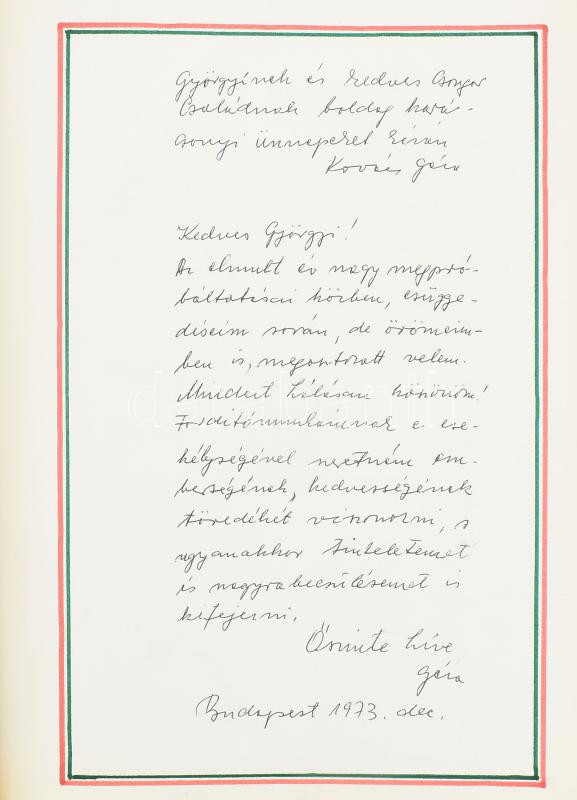 Györgyinek és kedves Csongor
Családnak boldog kará-
csonyi ünnepeket kíván
Kovács Géza
Kedves Györgyi!
Az elmult év nagy megpró-
báltatásai közben, csügge-
déseim során, de örömeim-
ben is, megosztozott velem.
Mindezt hálásan köszönöm!
Fordítómunkámnak e cse-
kélységével szeretném em-
berségének, kedvességének
töredékét viszonozni, s
ugyanakkor tiszteletemet
és nagyrabecsülésemet is
kifejezni.
Őszinte híve
Géza
Budapest 1973. dec.